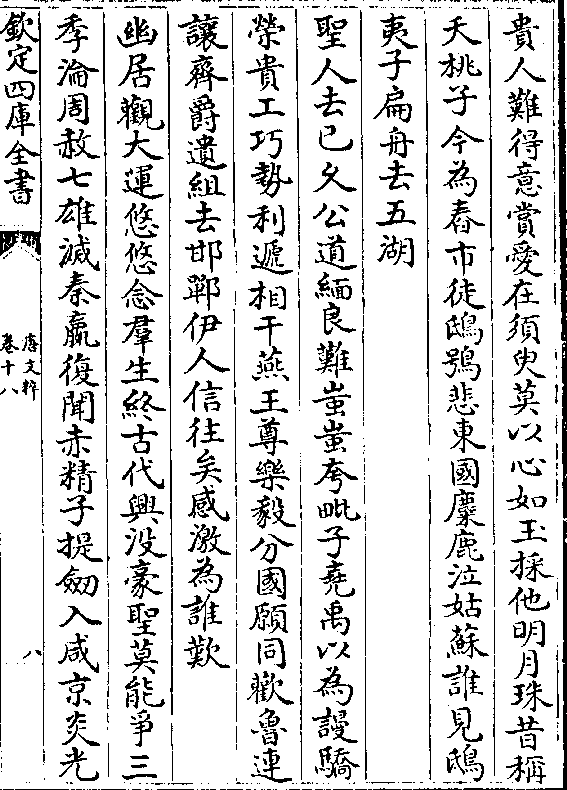 貴人難得意賞愛在須臾莫以心如玉探他明月珠昔稱
夭桃子今為舂市徒鴟鴞悲東國麋鹿泣姑蘇誰見鴟
夷子扁舟去五湖
聖人去已久公道緬良難蚩蚩夸毗子堯禹以為謾驕
榮貴工巧勢利遞相干燕王尊樂毅分國願同歡魯連
讓齊爵遺組去邯鄲伊人信往矣感激為誰歎
幽居觀大運悠悠念羣生終古代興没豪聖莫能爭三
季淪周赧七雄滅秦嬴復聞赤精子提劔入咸京炎光
欽定四庫全書
唐文粹
卷十八
八